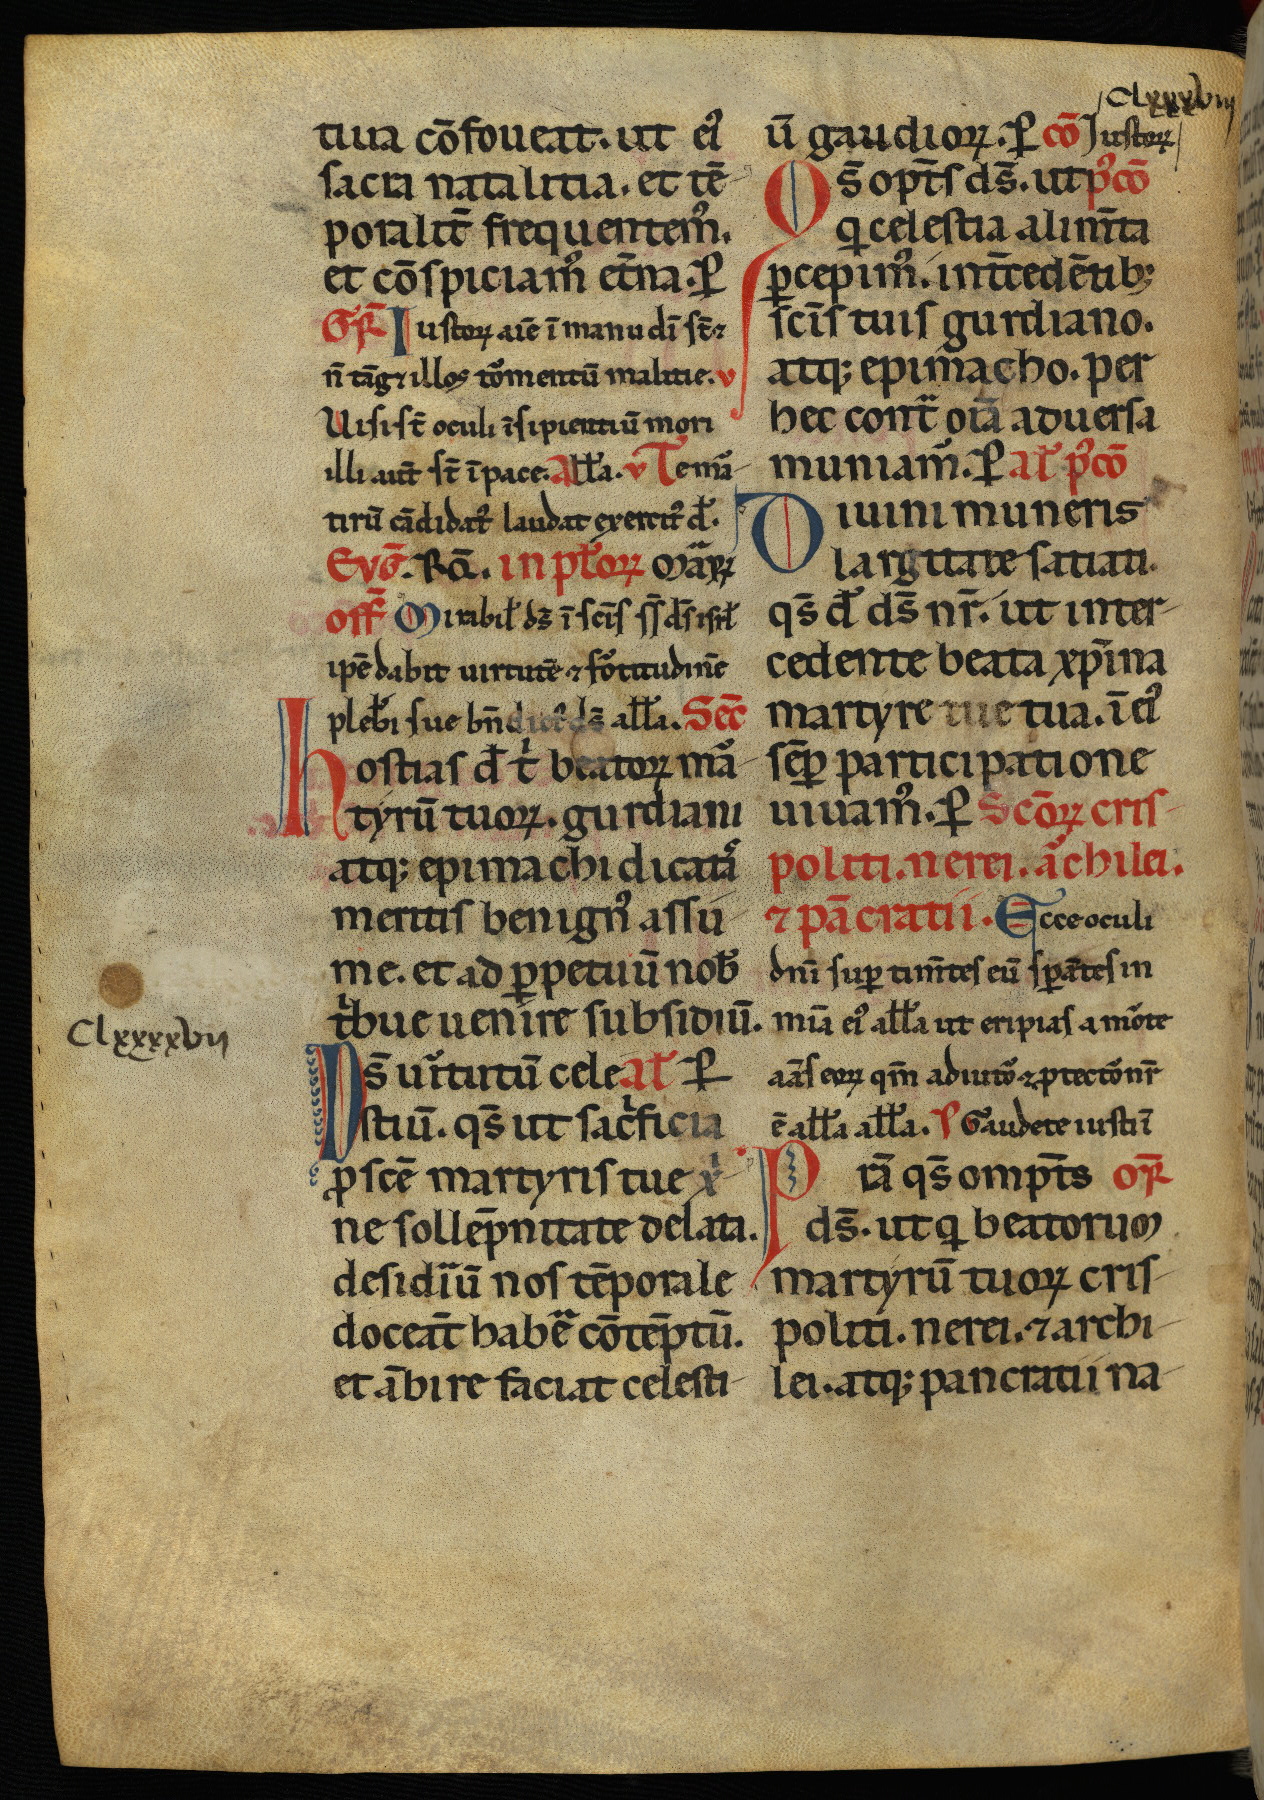 Clxxxxvii
tua cōfoueat. ut ei᷒
sacra natalitia. et tē-
poralit̄ frequentem᷒.
et cōspiciam᷒ et̄na. ꝑ
Gr̄ Iustoꝝ aīe ī manu dī st̄. ⁊
n̄ tāget illos tormentū malitie. v
Uisi st̄ oculi īsipientiū mori
illi aut̄ st̄ ī pace. Allꝉa. v Te mā-
tirū cādidat᷒ laudat exercit᷒ d̄.
Evḡ. Rō. in pꝉoꝝ maꝝ
off̄ Mirabil̄ ds̄ ī scīs s̄ ds̄ isrl̄
ipē dabit uirtutē ⁊ fortitudinē
plebi sue bn̄dict᷒ ds̄ allꝉa. Sec̄
hostias d̄ t̄ beatoꝝ mā-
tyrū tuoꝝ. gurdiani
atq; epimachi dicatā
meritis benign᷒ assu-
me. et ad ꝑpetuū nob̄
tͥbue uenire subsidiū.
Ds̄ uirtutū cele Al̄ ꝑ
stiū. qs̄ ut sac̄ficia
ꝓ scē martyris tue xͥ-
ne sollēpnitate delata.
desidiū nos tēporale
doceāt habē cōtēptū.
et ābire faciat celesti-
Clxxxxvii
ū gaudioꝝ. ꝑ cō Iustoꝝ
Os̄ opt̄s ds̄. ut p᷒cō
qͥ celestia alimt̄a
ꝑcepim᷒. int̄cedētib;
scīs tuis gurdiano.
atq; epimacho. per
hec cont̄ oīa aduersa
muniam᷒. ꝑ Al̄ p᷒cō
Diuini muneris
largitate satiati.
qs̄ d̄ ds̄ nr̄. ut inter-
cedente beata xp̄ina
martyre tue tua. ī ei᷒
sēꝑ participatione
uiuam᷒. ꝑ Scōꝝ cris-
politi. nerei. achilei.
⁊ pācratii. Ecce oculi
dn̄i suꝑ timt̄es eū sꝑātes in
mīa ei᷒ allꝉa ut eripias a morte
aīas eoꝝ qm̄ adiutor ⁊ ꝓtector nr̄
ē allꝉa allꝉa. P̄ Gaudete iusti ī
Pra qs̄ ompt̄s or̄
ds̄. ut qͥ beatorum
martyrū tuoꝝ cris-
politi. nerei. ⁊ archi-
lei. atq; pancratii na-